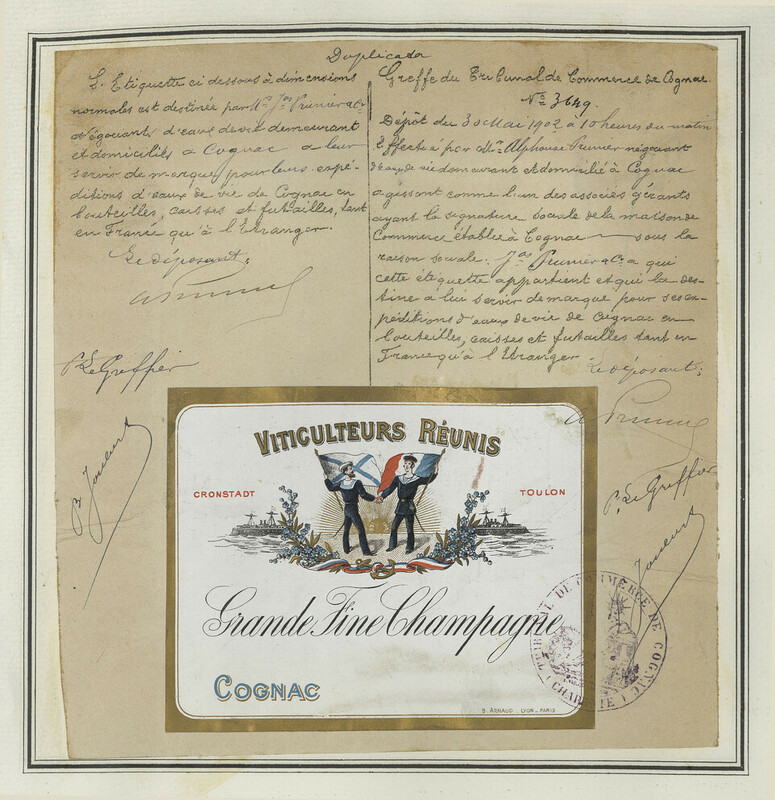 Duplicada
L'Etiquette ci dessous à dimensions
normales est destinée par Mrs Jas Prunier & Cie
Négociants d'eaux de vie demeurant
et domiciliés à Cognac a leur
servir de marque pour leurs expé-
ditions d'eaux de vie de Cognac en
bouteilles, caisses et futailles, tant
en France qu'à l'Etranger.
Le déposant:
A Prunier
P. Le Greffier
B Joseurs
Greffe du Tribunal de Commerce de Cognac.
No 3649.
Dépôt du 30 Mai 1902 à 10 heures du matin
Effectué par Mr Alphonse Prunier négociant
d'eaux de vie demeurant et domicilié à Cognac
agissant comme l'un des associés gérants
ayant la signature sociale de la maison de
Commerce établie à Cognac sous la
raison sociale: Jas Prunier & Cie a qui
cette étiquette appartient et qui la des-
tine a lui servir de marque pour ses ex-
péditions d'eaux de vie de Cognac en
bouteilles, caisses et futailles tant en
France qu'à l'Etranger
Le déposant:
A Prunier
P. Le Greffier
VITICULTEURS RÉUNIS
CRONSTADT
TOULON
Grande Fine Champagne
COGNAC
B. ARNAUD - LYON - PARIS
TRIBUNAL DE COMMERCE DE COGNAC
(CHARENTE)